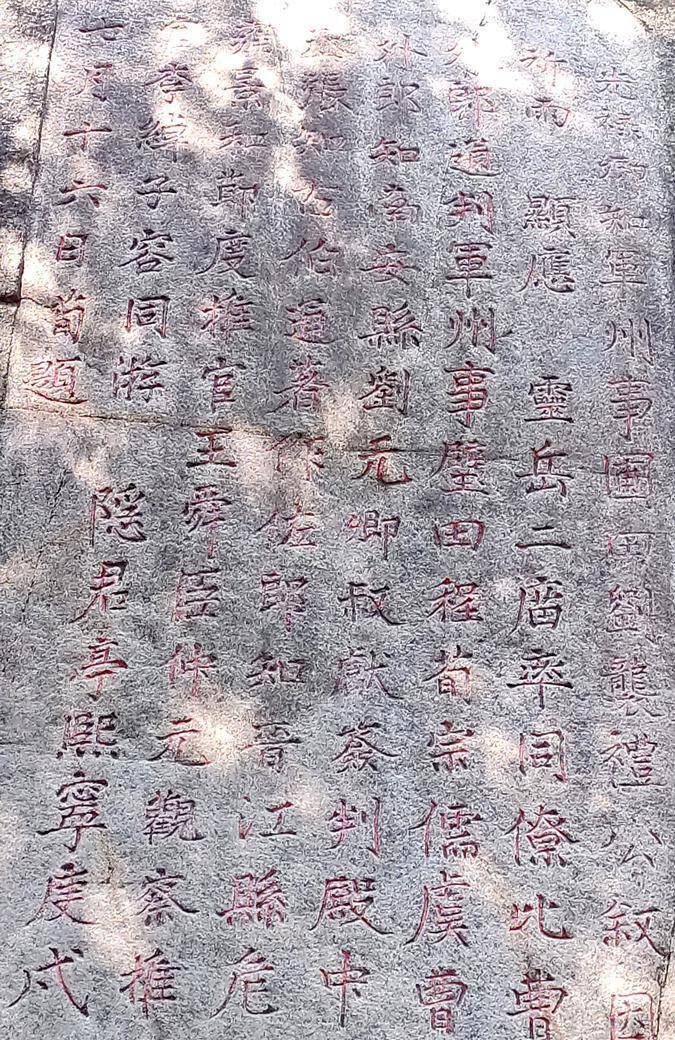 光祿卿知軍州事河劉襲禮公叙因
祈雨 顯應 靈岳二庿率同僚比曹
外郎通判軍州事壁田程荀宗儒虞曹
外郎知南安縣劉元卿叔獻簽判殿中
丞張知古伯通著作佐郎知晉江縣危
雍景和節度推官王舜臣仲元觀察推
官季子容同游 隱君亭熙寧庚戌
七月十六日荀題